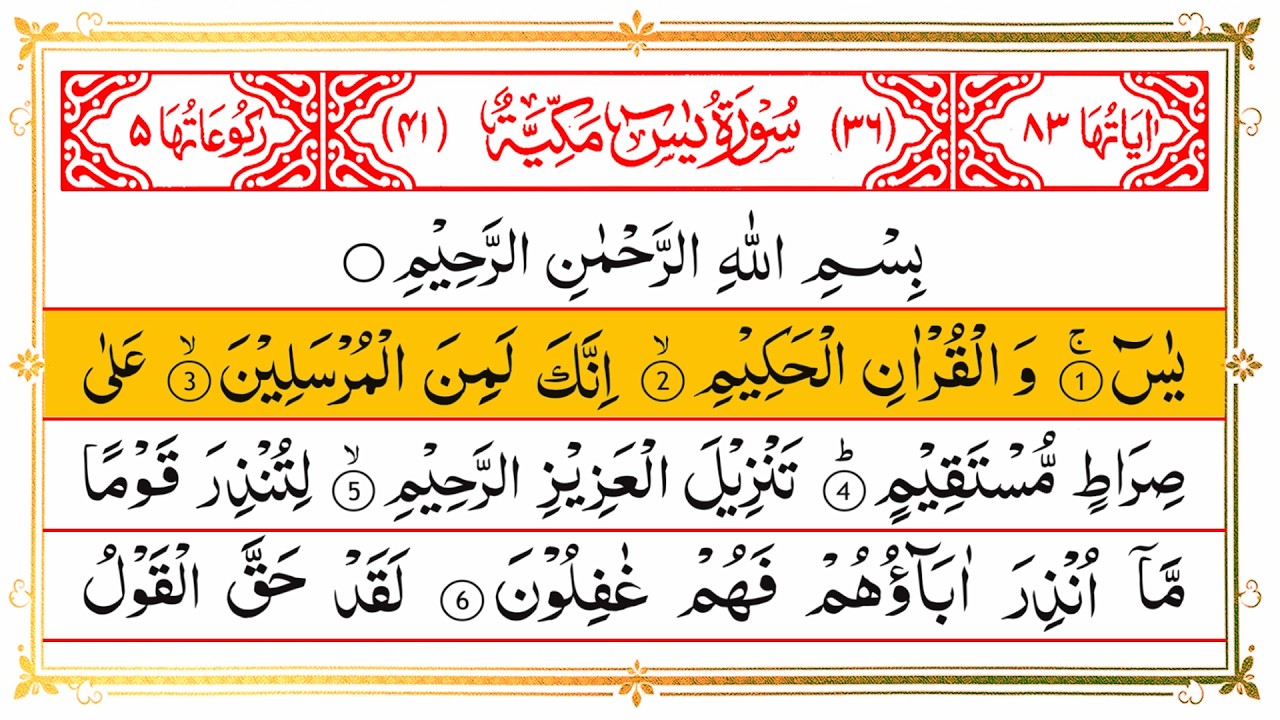 اٰيَاتُهَا ٨٣ (٣٦) سُوْرَةُ يٰسٓ مَكِّيَّةٌ (٤١) رُكُوْعَاتُهَا ٥
بِسْمِ اللّٰهِ الرَّحْمٰنِ الرَّحِيْمِ ○
يٰسٓ ۚ ① وَ الْقُرْاٰنِ الْحَكِيْمِ ۙ ② اِنَّكَ لَمِنَ الْمُرْسَلِيْنَ ۙ ③ عَلٰى
صِرَاطٍ مُّسْتَقِيْمٍ ؕ ④ تَنْزِيْلَ الْعَزِيْزِ الرَّحِيْمِ ۙ ⑤ لِتُنْذِرَ قَوْمًا
مَّاۤ اُنْذِرَ اٰبَآؤُهُمْ فَهُمْ غٰفِلُوْنَ ⑥ لَقَدْ حَقَّ الْقَوْلُ